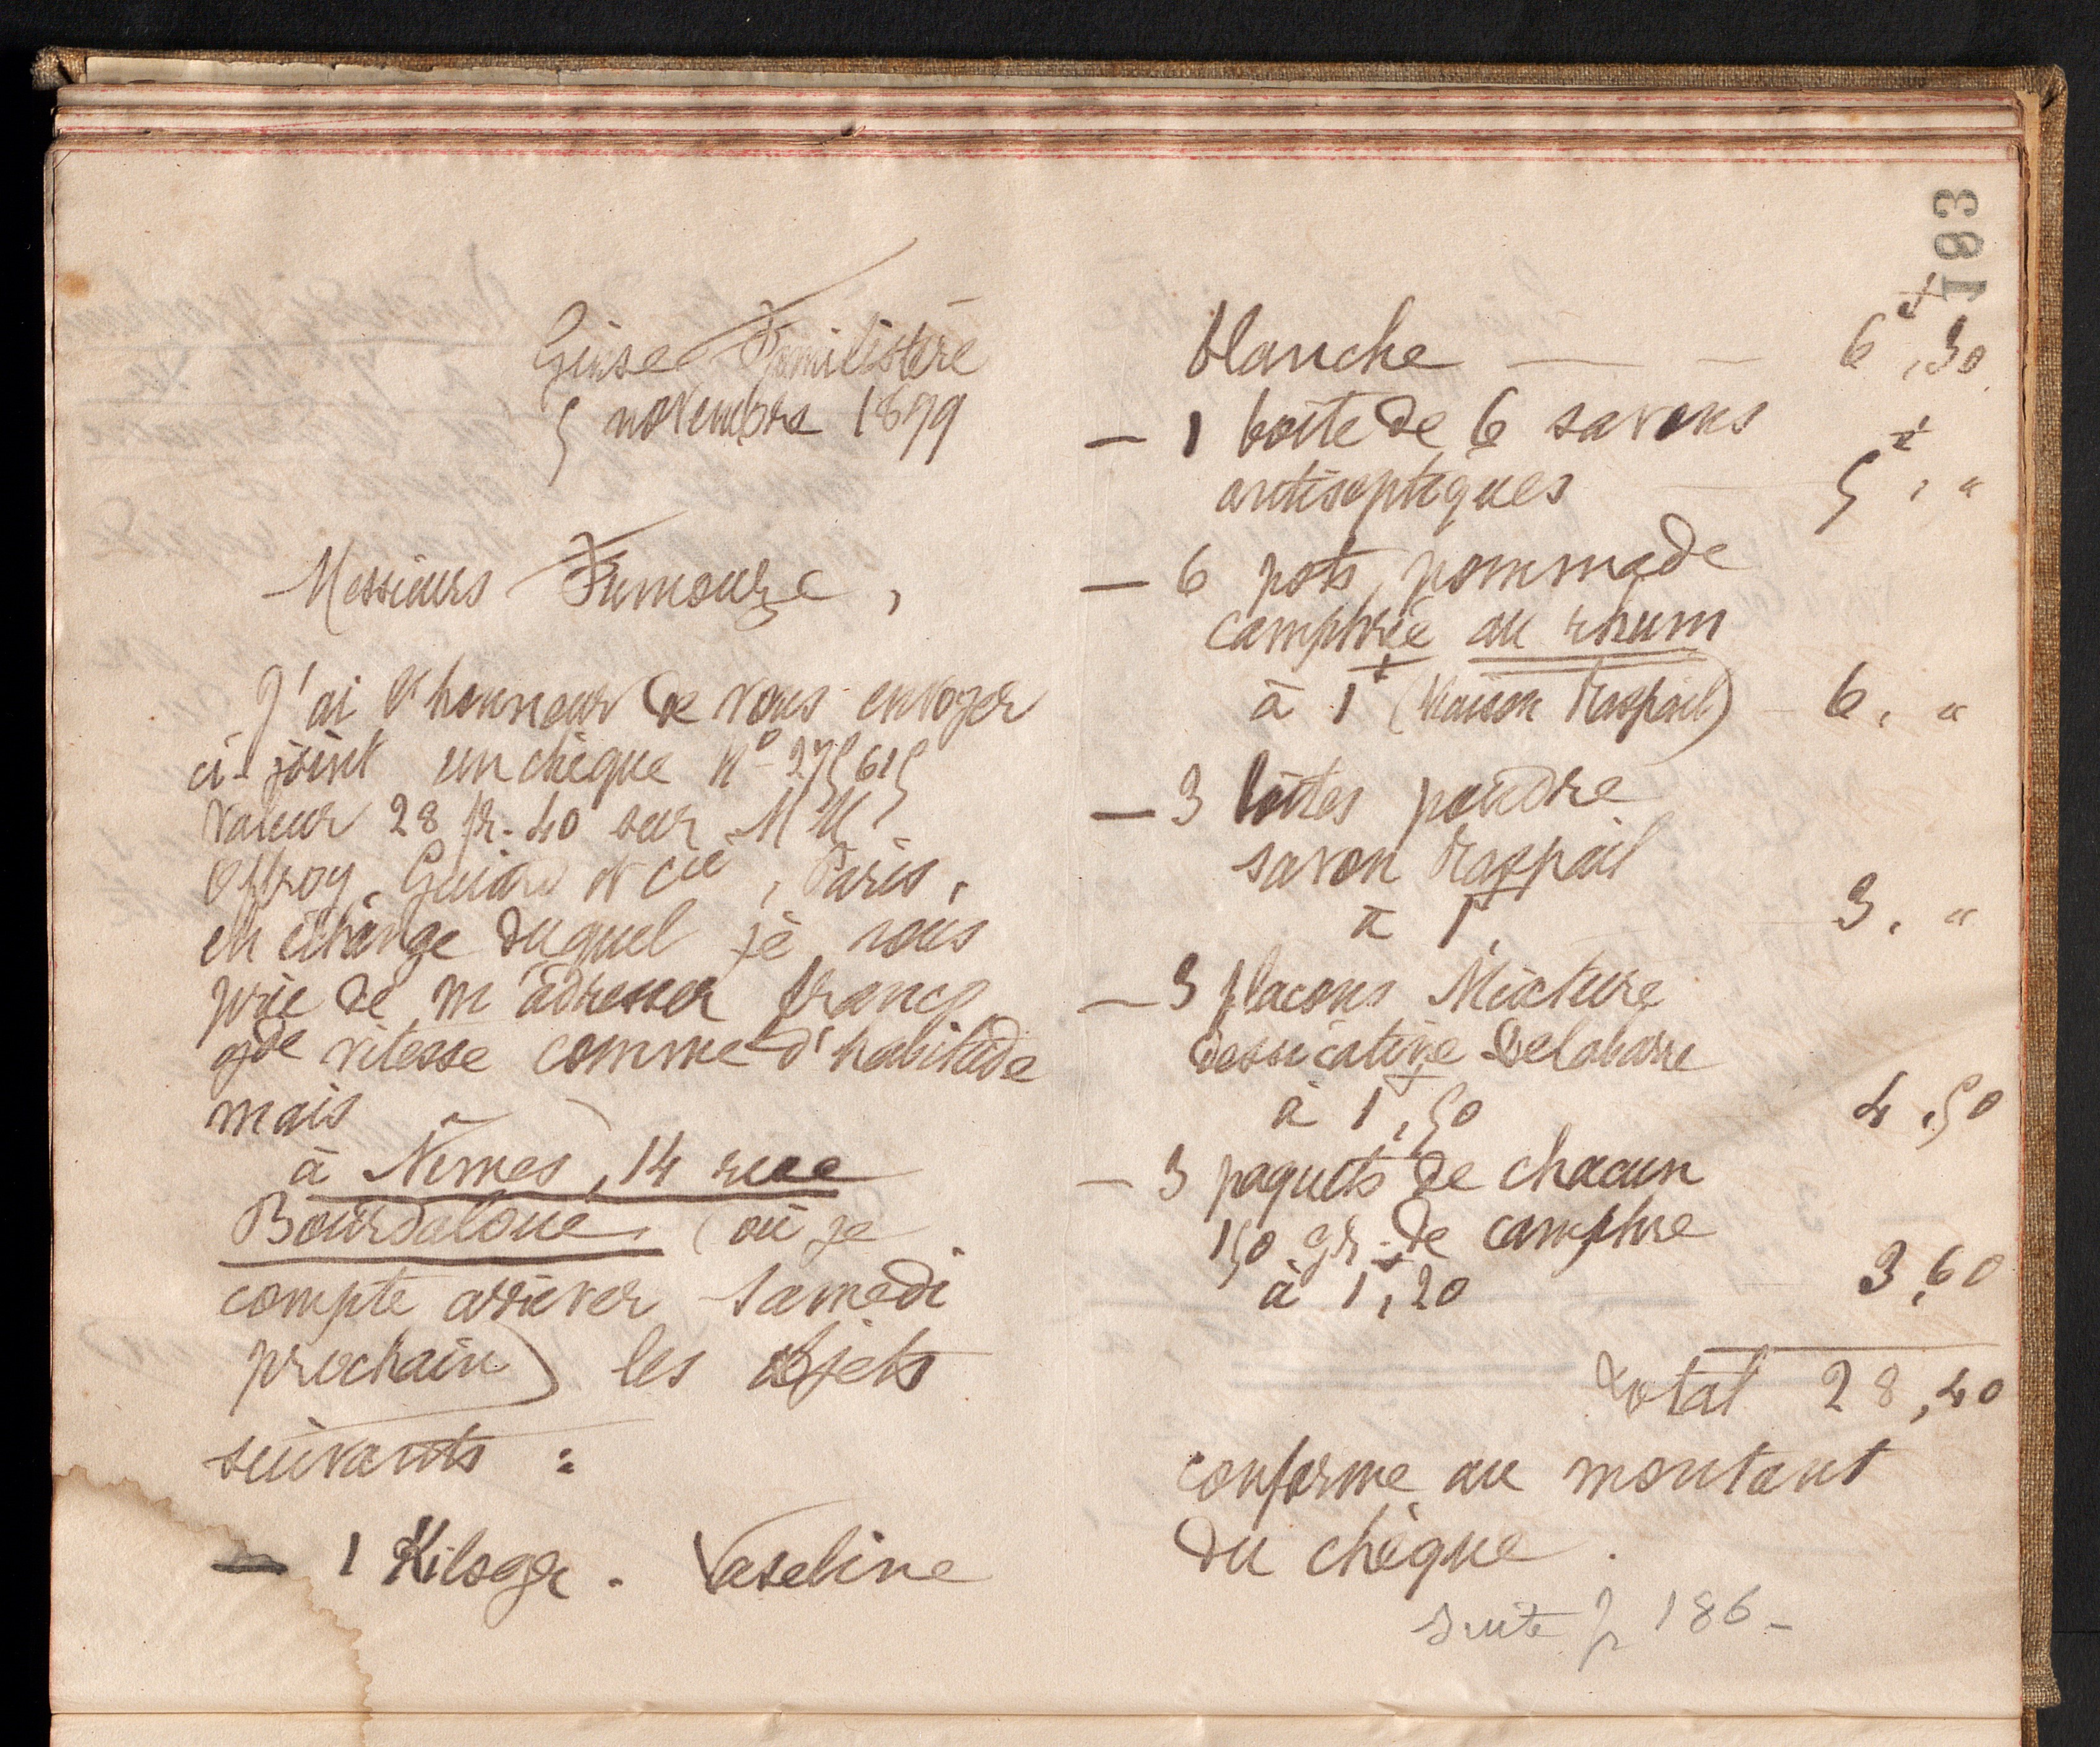 183
Guise Familistère
5 novembre 1899
Messieurs Fumouze,
J'ai l'honneur de vous envoyer
ci-joint un chèque Nº 275615
valeur 28 fr. 40 sur MM.
Offroy, Guiard et Cie, Paris,
en échange duquel je vous
prie de m'adresser franco
gde vitesse comme d'habitude
mais
à Nîmes, 14 rue
Bourdaloue, (où je
compte arriver samedi
prochain) les objets
suivants :
— 1 Kilogr. Vaseline
blanche — — 6f,30
— 1 boîte de 6 savons
antiseptiques 5f, "
— 6 pots pommade
camphrée au rhum
à 1f (Maison Raspail) 6, "
— 3 boîtes poudre
savon Raspail
à 1f 3, "
— 3 flacons Mixture
dessicative Delabarre
à 1f,50 4,50
— 3 paquets de chacun
150 gr. de camphre
à 1f,20 3,60
Total 28,40
conforme au montant
du chèque.
suite p 186 -